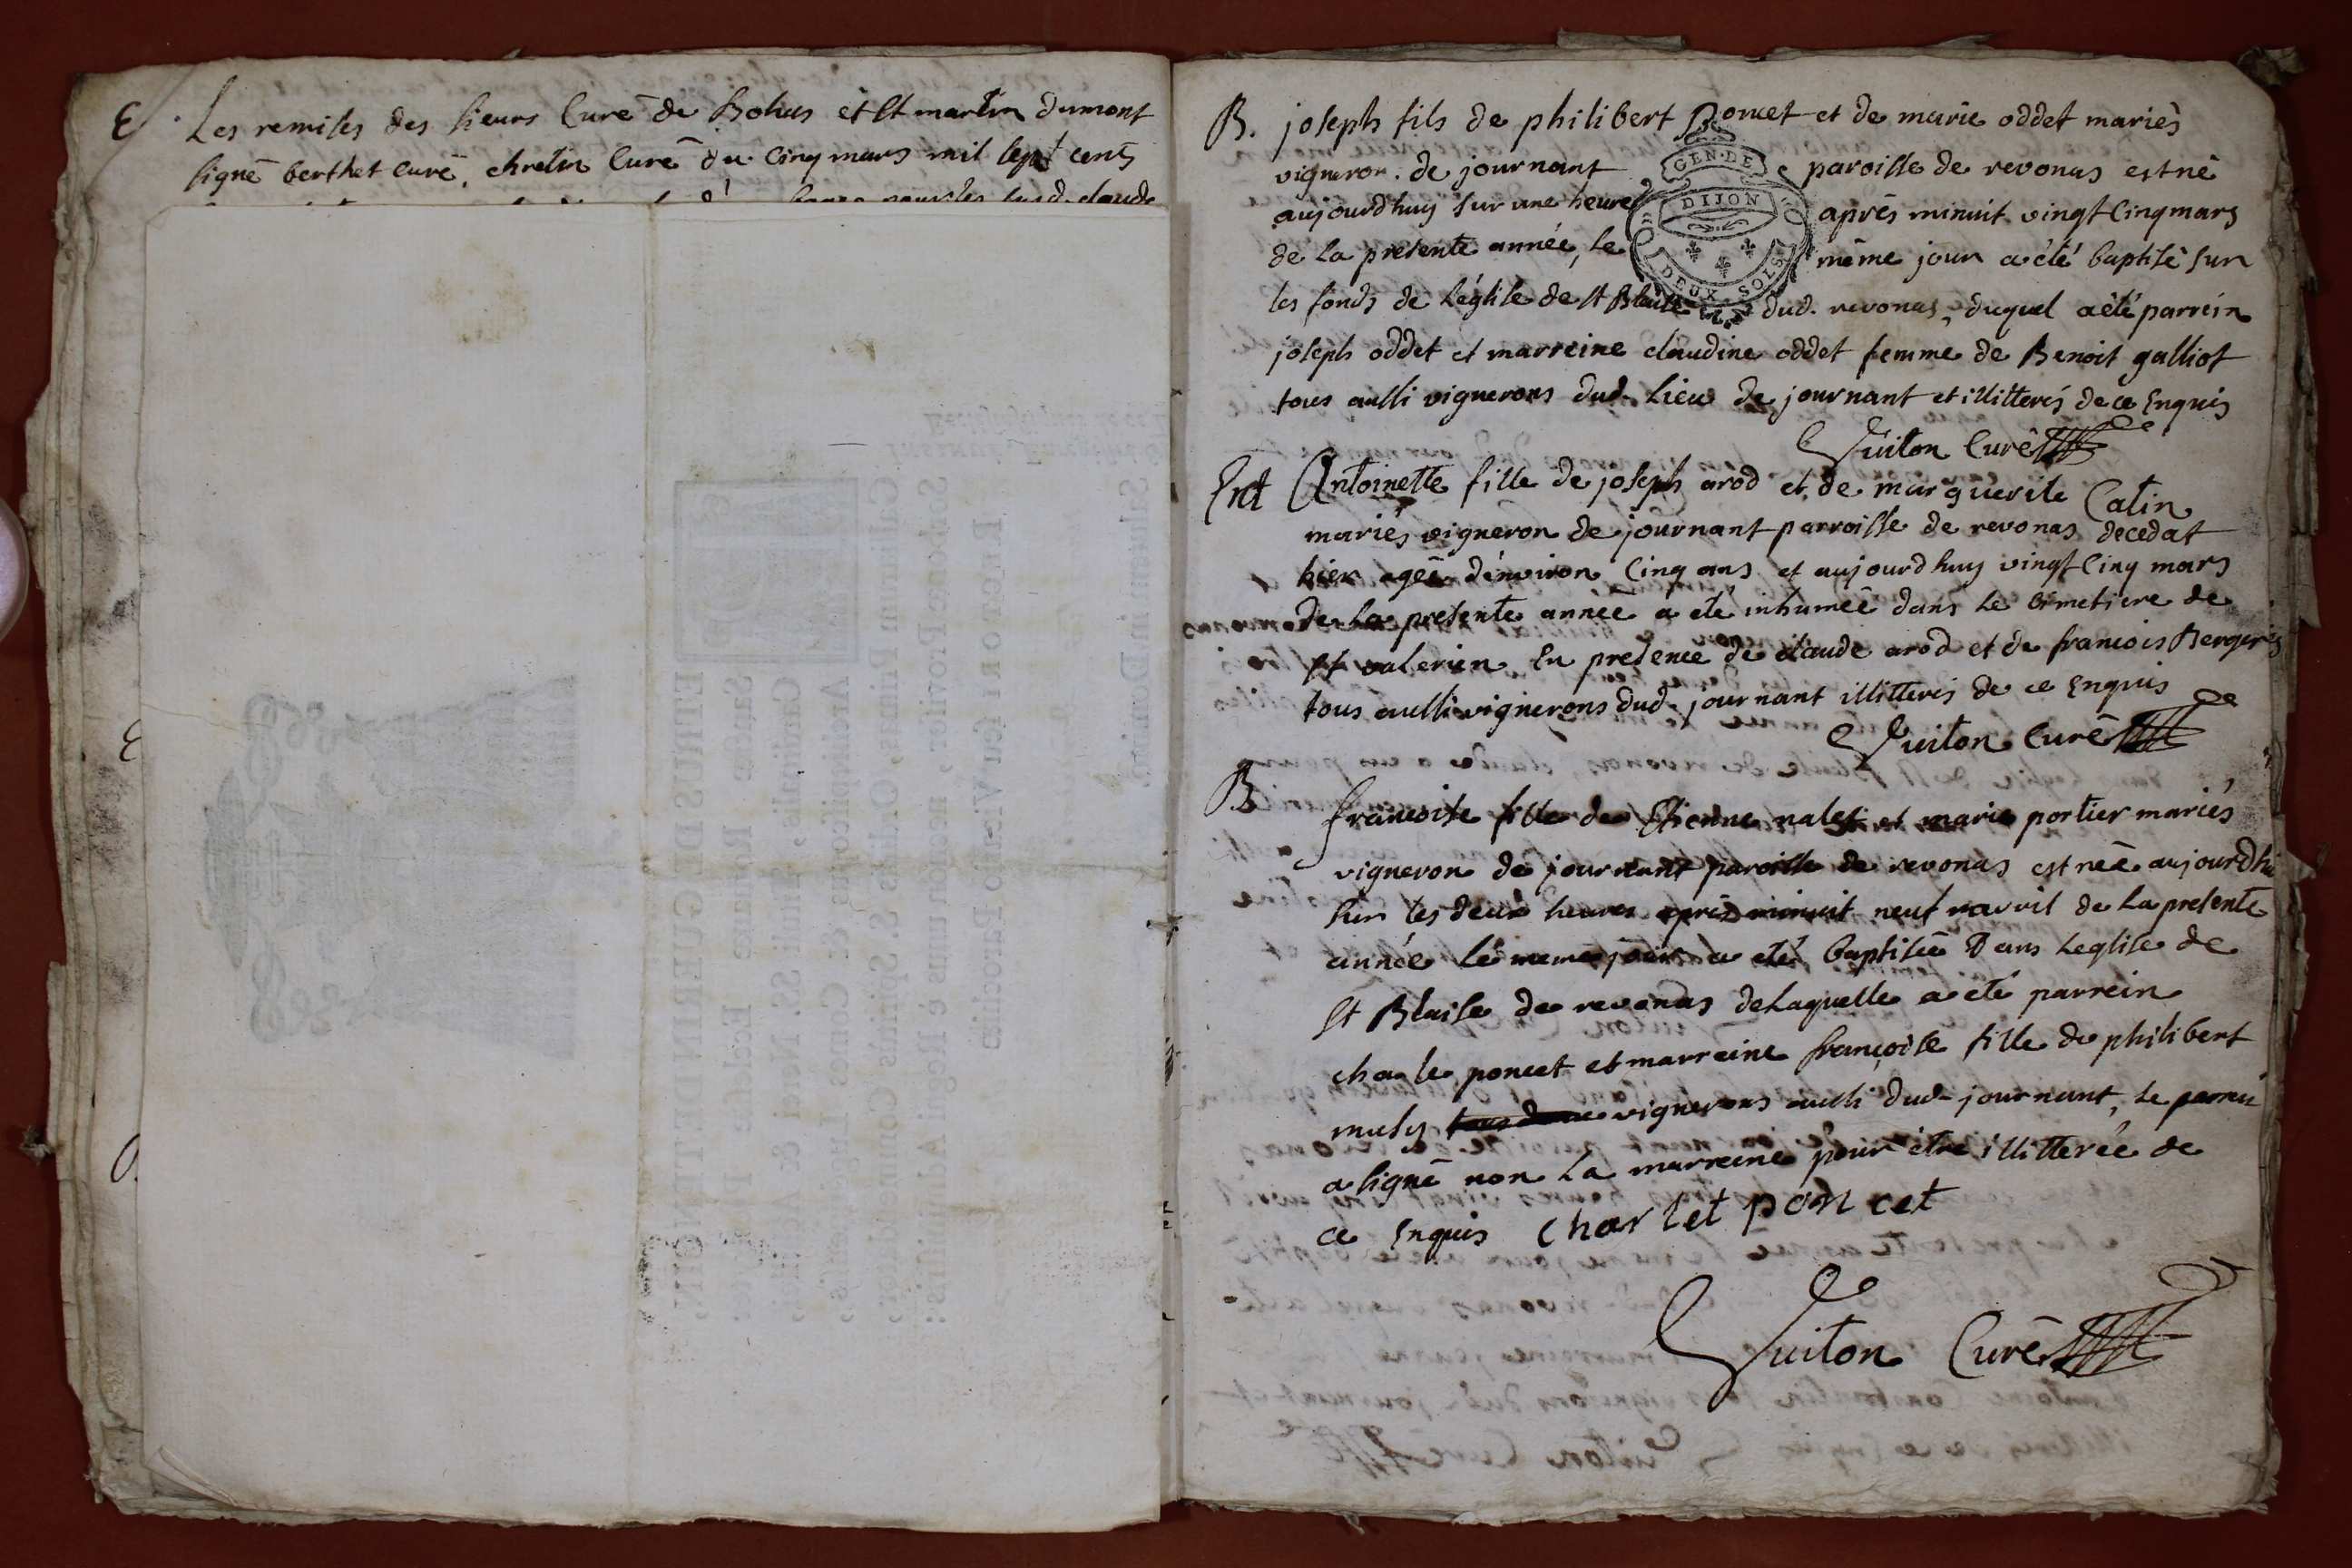 Les remises des sieurs Curé de Bohas et St martin dumont
signé berthet curé, chretin Curé du cinq mars mil sept cents
B. joseph fils de philibert Poncet et de marie oddet mariés
vigneron de journant paroisse de revonas est né
aujourdhuy sur une heure après minuit vingt Cinq mars
de la presente année, le même jour a été baptisé sur
les fonds de L'église de St Blaise dud. revonas, duquel a été parrein
joseph oddet et marreine claudine oddet femme de Benoit galliot
tous aussi vignerons dud. Lieu de journant et illitterés de ce Enquis
GEN. DE
DIJON
DEUX SOLS
Guiton Curé
Ent Antoinette fille de joseph arod et de marguerite Catin
mariés vigneron de journant parroisse de revonas decedat
hier agée d'environ Cinq ans et aujourdhuy vingt Cinq mars
de La presente année a été inhumée dans Le Cimetiere de
St valerien En presence de claude arod et de francois Bergeri
tous aussi vignerons dud. journant illitterés de ce Enquis
Guiton Curé
B francoise fille de Etienne nalet et marie portier mariés
vigneron de journant paroisse de revonas est née aujourdhu
sur les deux heures après minuit neuf avril de La presente
année Le meme jour a eté baptisée Dans Leglise de
St Blaise de revonas deLaquelle a eté parrein
charle poncet et marreine françoise fille de philibert
vignerons aussi dud. journant, Le parrei
a signé non La marreine pour être illitterée de
ce Enquis charlet poncet
Guiton Curé